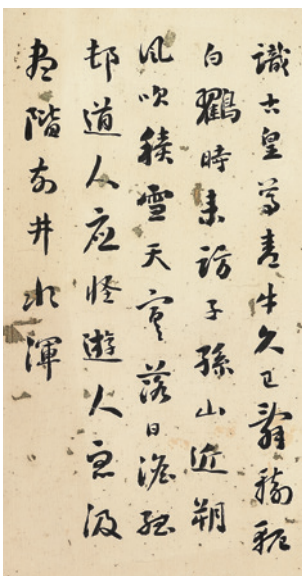 識古皇尊青牛久已辭轅軛
白鶴時來訪子孫山近朔
風吹積雪天寒落日澹孤
邨道人应怪遊人眾汲
盡階前井水渾